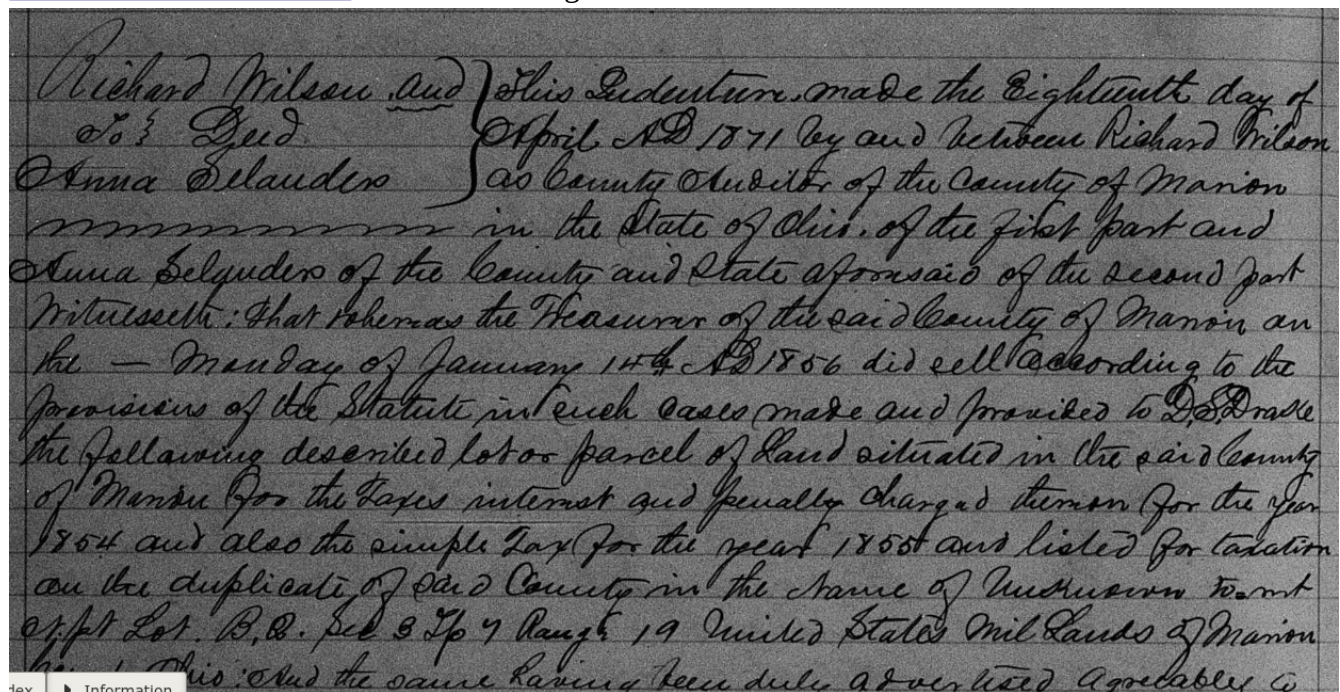 Richard Wilson and } This Indenture, made the Eighteenth day of
To } Deed. April AD 1871 by and between Richard Wilson
Anna Selanders as County Auditor of the County of Marion
in the State of Ohio. of the first part and
Anna Selanders of the County and State aforesaid of the second part
Witnesseth: that whereas the Treasurer of the said County of Marion on
the — Monday of January 14th AD 1856 did sell according to the
provisions of the Statute in such cases made and provided to D.S. Drake
the following described lot or parcel of Land situated in the said County
of Marion for the Taxes interest and penalty charged thereon for the year
1854 and also the simple Tax for the year 1855 and listed for taxation
on the duplicate of said County in the Name of Unknown to-wit
pt Lot. B.2. Sec 3 Tp 7 Range 19 United States Mil Lands of Marion
Ohio: And the same having been duly advertised Agreeably
dex Information